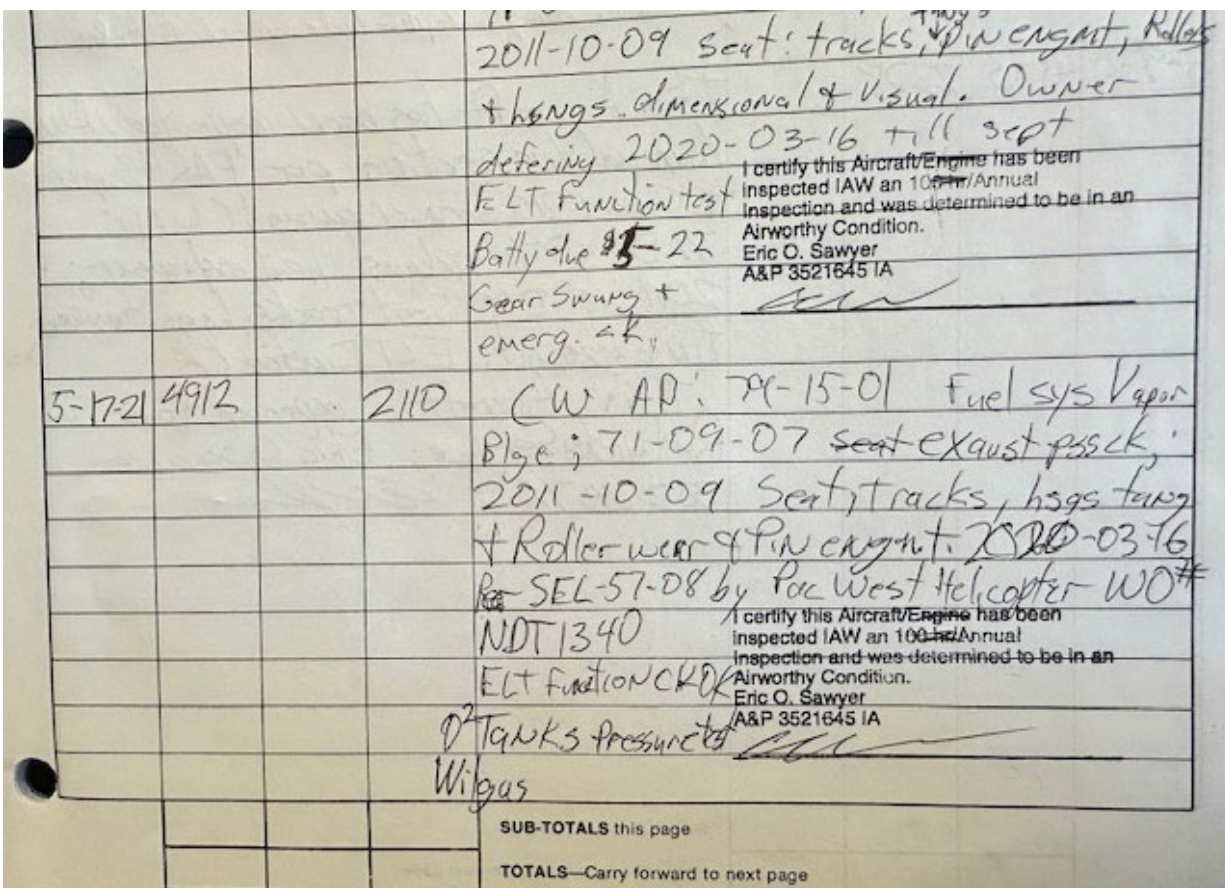 tangs
2011-10-09 Seat: tracks, pin engmt, Rollers
+ hsngs. dimensional & Visual. Owner
defering 2020-03-16 till sept
ELT Function test
Batty due 5-22
Gear Swung +
emerg. ck,
I certify this Aircraft/Engine has been
inspected IAW an 100 hr/Annual
Inspection and was determined to be in an
Airworthy Condition.
Eric O. Sawyer
A&P 3521645 IA
5-17-21 4912 2110 CW AD: 79-15-01 Fuel sys Vapor
Blge; 71-09-07 seat exaust pssck;
2011-10-09 Seat, Tracks, hsgs tang
+ Roller wear & Pin engmt. 2020-03-16
Per SEL-57-08 by Pac West Helicopter WO#
NDT1340
ELT Function CK OK
O2 Tanks Pressure test
Wilgas
I certify this Aircraft/Engine has been
inspected IAW an 100 hr/Annual
Inspection and was determined to be in an
Airworthy Condition.
Eric O. Sawyer
A&P 3521645 IA
SUB-TOTALS this page
TOTALS—Carry forward to next page